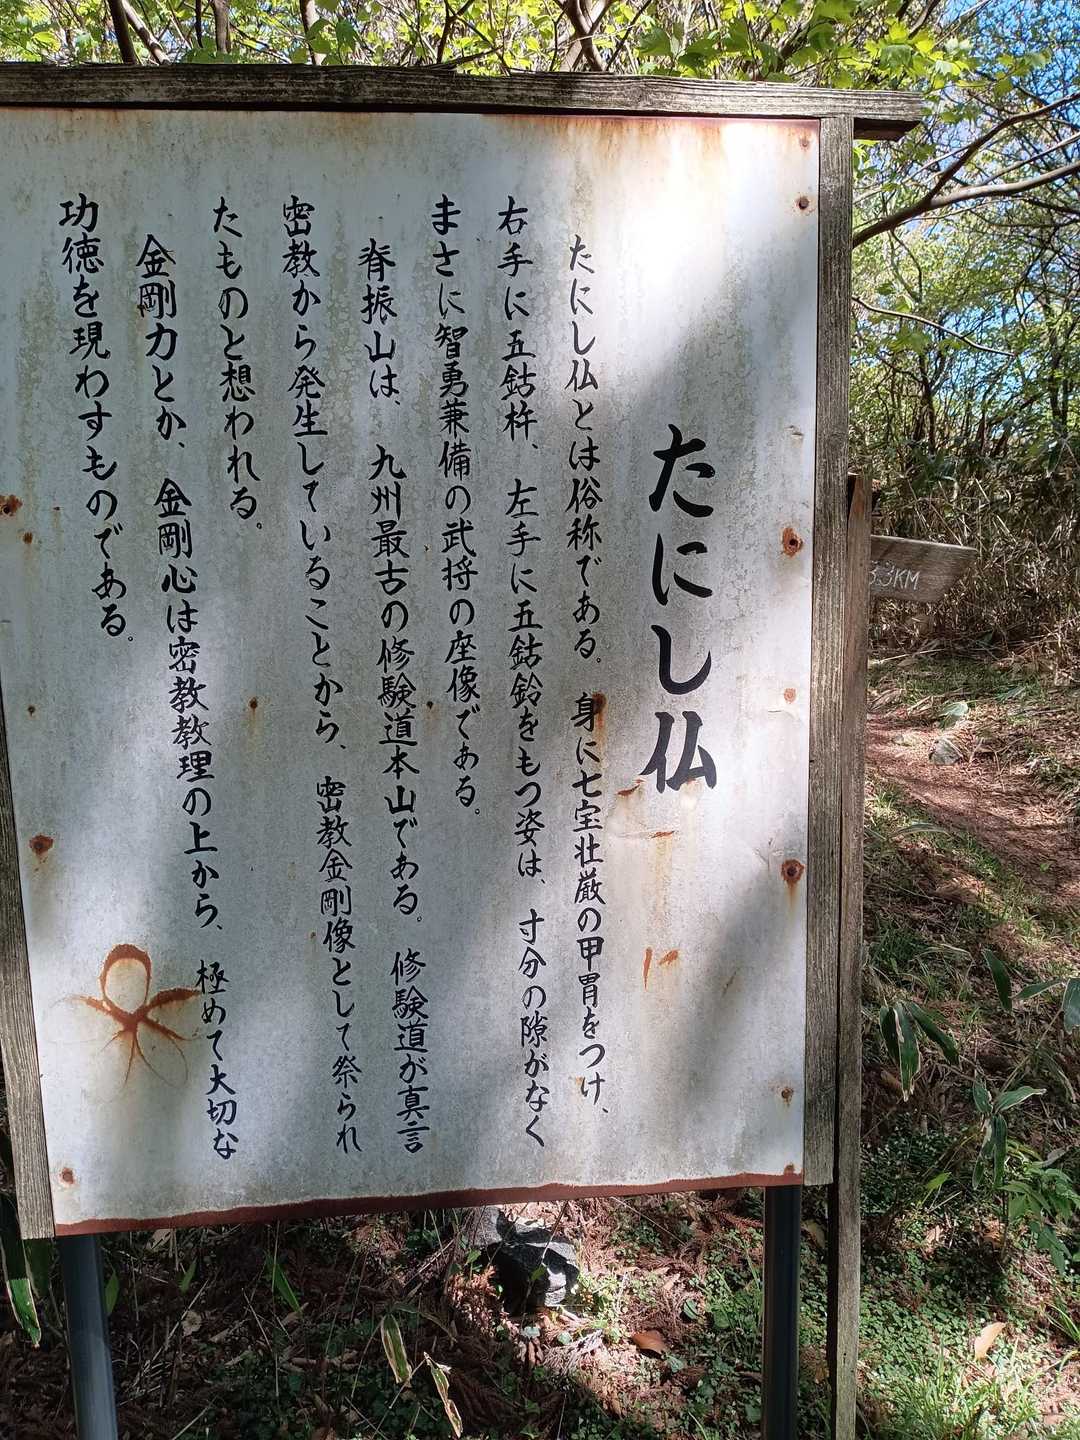 たにし仏
たにし仏とは俗称である。身に七宝壮厳の甲冑をつけ、
右手に五鈷杵、左手に五鈷鈴をもつ姿は、寸分の隙がなく
まさに智勇兼備の武将の座像である。
脊振山は、九州最古の修験道本山である。修験道が真言
密教から発生していることから、密教金剛像として祭られ
たものと想われる。
金剛力とか、金剛心は密教教理の上から、極めて大切な
功徳を現わすものである。
3KM